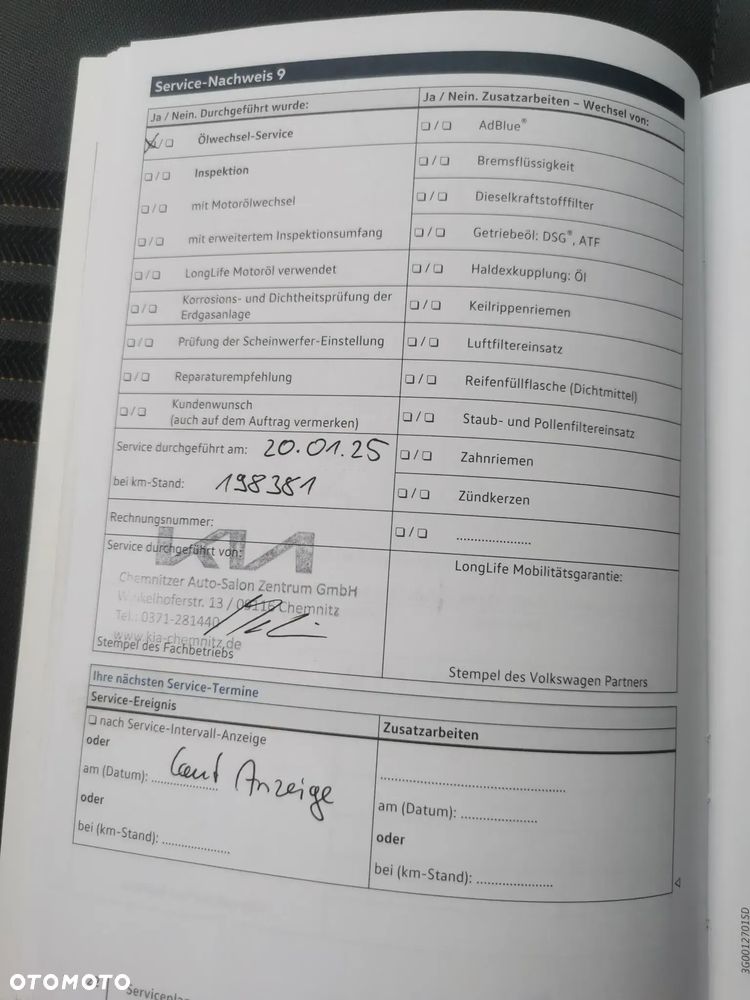 Service-Nachweis 9
Ja / Nein. Durchgeführt wurde:
Ölwechsel-Service
Inspektion
mit Motorölwechsel
mit erweitertem Inspektionsumfang
LongLife Motoröl verwendet
Korrosions- und Dichtheitsprüfung der
Erdgasanlage
Prüfung der Scheinwerfer-Einstellung
Reparaturempfehlung
Kundenwunsch
(auch auf dem Auftrag vermerken)
Service durchgeführt am: 20.01.25
bei km-Stand: 198381
Rechnungsnummer:
Service durchgeführt von:
KIA
Chemnitzer Auto-Salon Zentrum GmbH
Winkelhoferstr. 13 / 09116 Chemnitz
Tel.: 0371-281440
www.kia-chemnitz.de
Stempel des Fachbetriebs
Ja / Nein. Zusatzarbeiten – Wechsel von:
AdBlue®
Bremsflüssigkeit
Dieselkraftstofffilter
Getriebeöl: DSG®, ATF
Haldexkupplung: Öl
Keilrippenriemen
Luftfiltereinsatz
Reifenfüllflasche (Dichtmittel)
Staub- und Pollenfiltereinsatz
Zahnriemen
Zündkerzen
.....................
LongLife Mobilitätsgarantie:
Stempel des Volkswagen Partners
Ihre nächsten Service-Termine
Service-Ereignis
nach Service-Intervall-Anzeige
oder
am (Datum): .................. laut Anzeige
oder
bei (km-Stand): ..................
Zusatzarbeiten
..................................................
am (Datum): ....................
oder
bei (km-Stand): ....................
3G0012701SD
OTOMOTO